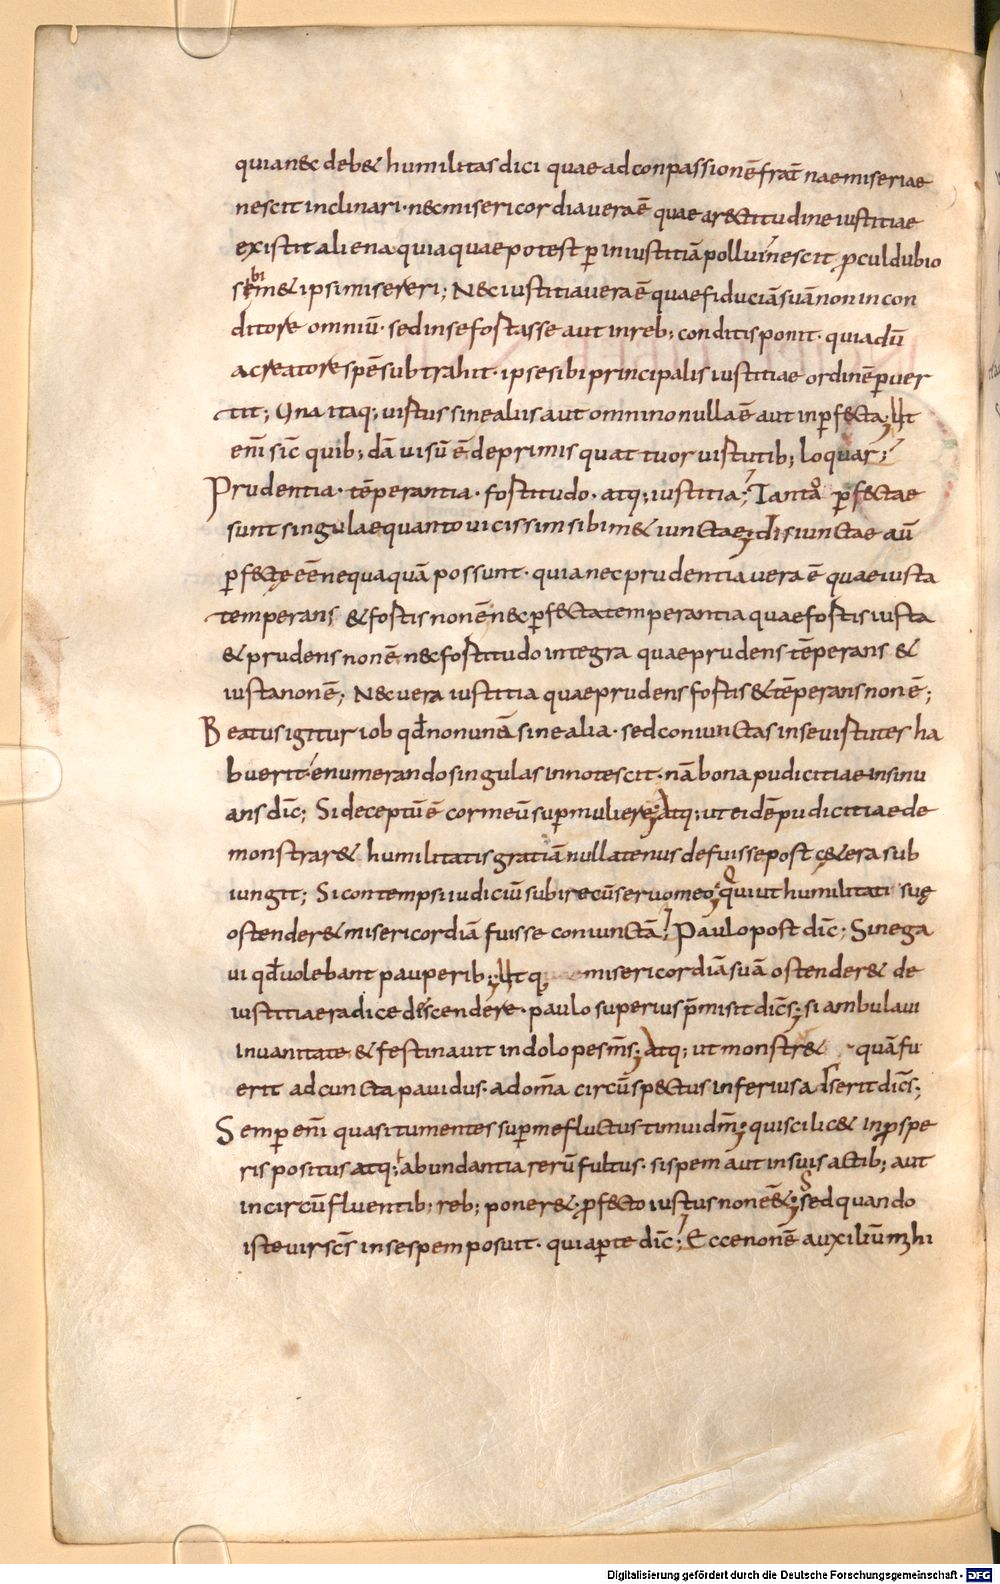 quia nec deb& humilitas dici quae ad conpassionē frat̄nae miseriae
nescit inclinari · nec misericordia uera ē quae a rectitudine iustitiae
existit aliena quia quae potest p̄ iniustitiā pollui nescit p̄culdubio
sibim& ipsi misereri; Nec iustitia uera ē quae fiduciā suā non in con
ditore omniū · sed in se fortasse aut in reb; conditis ponit · quia dū
a creatore spē subtrahit · ipse sibi principalis iustitiae ordinē p̄uer
tit; Una itaq; uirtus sine aliis aut omnino nulla ē aut inp̄fecta; Ut
enī sic̄ quib; dā uisū ē de primis quattuor uirtutib; loquar;
Prudentia · tēperantia · fortitudo · atq; iustitia; Tanto p̄fectae
sunt singulae quanto uicissim sibim& iunctae; disiunctae aū
p̄fectę eē nequaquā possunt · quia nec prudentia uera ē quae iusta
temperans & fortis non ē nec p̄fecta temperantia quae fortis iusta
& prudens non ē nec fortitudo integra quae prudens tēperans &
iusta non ē; Nec uera iustitia quae prudens fortis & tēperans non ē;
Beatus igitur iob qđ non unā sine alia · sed coniunctas in se uirtutes ha
buerit enumerando singulas innotescit · nā bona pudicitiae insinu
ans dic̄; Si deceptū ē cor meū sup̄ muliere; atq; ut eidē pudicitiae de
monstrar& humilitatis gratiā nullatenus defuisse post c&era sub
iungit; Si contempsi iudiciū subire cū seruo meo; Qui ut humilitati suę
ostender& misericordiā fuisse coniunctā; Paulo post dic̄; Si nega
ui qđ uolebant pauperib; Ut q; misericordiā suā ostender& de
iustitiae radice descendere · paulo superius p̄misit dics̄; si ambulaui
in uanitate & festinauit in dolo pes m̄s; atq; ut monstr& quā fu
erit ad cuncta pauidus · ad om̄a circūspectus inferius adserit dics̄;
Semp̄ enī quasi tumentes sup̄ me fluctus timui dm̄; qui scilic& in p̄spe
ris positus atq; abundantia rerū fultus · si spem aut in suis actib; aut
in circūfluentib; reb; poner& p̄fecto iustus non eē&; sed quando
iste uir scs̄ in se spem posuit · qui ap̄te dic̄; Ecce non ē auxiliū m̄hi
Digitalisierung gefördert durch die Deutsche Forschungsgemeinschaft - DFG